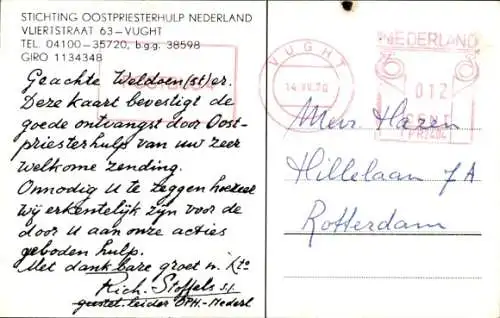 STICHTING OOSTPRIESTERHULP NEDERLAND
VLIERTSTRAAT 63-VUGHT
TEL. 04100-35720, b.g.g. 38598
GIRO 1134348
Geachte Weldoen(st)er.
Deze kaart bevestigt de
goede ontvangst door Oost-
priesterhulp van uw zeer
welkome zending.
Onnodig U te zeggen hoezeer
wij erkentelijk zijn voor de
door U aan onze acties
geboden hulp.
Met dankbare groet n. Kto
Rich. Stoffels s.j.
geestel. leider OPH.-Nederl
VUGHT
14.VII.70
NEDERLAND
012
CENT
Mevr Haren
Hillelaan 7A
Rotterdam